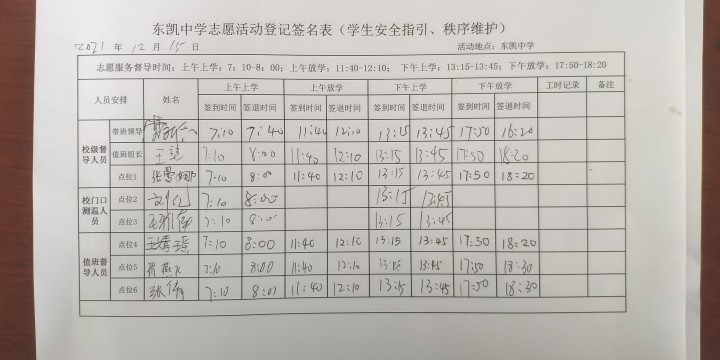 东凯中学志愿活动登记签名表（学生安全指引、秩序维护）
2021 年 12 月 15 日 活动地点：东凯中学
志愿服务督导时间：上午上学：7：10-8：00；上午放学：11:40-12:10； 下午上学：13:15-13:45；下午放学：17:50-18:20
人员安排 姓名 上午上学 上午放学 下午上学 下午放学 工时记录 备注
签到时间 签退时间 签到时间 签退时间 签到时间 签退时间 签到时间 签退时间
校级督导人员 带班领导 7:10 7:40 11:40 12:10 13:15 13:45 17:50 16:20
值班组长 王 7:10 8:00 11:40 12:10 13:15 13:45 17:50 18:20
点位1 张 娜 7:10 8:00 11:40 12:10 13:15 13:45 17:50 18:20
校门口测温人员 点位2 7:10 8:00 13:15 13:45
点位3 7:10 8:00 13:15 13:45
值班督导人员 点位4 王靖瑶 7:10 8:00 11:40 12:10 13:15 13:45 17:50 18:20
点位5 燕飞 7:10 8:00 11:40 12:10 13:15 13:45 17:50 18:30
点位6 张倩 7:10 8:00 11:40 12:10 13:15 13:45 17:50 18:30